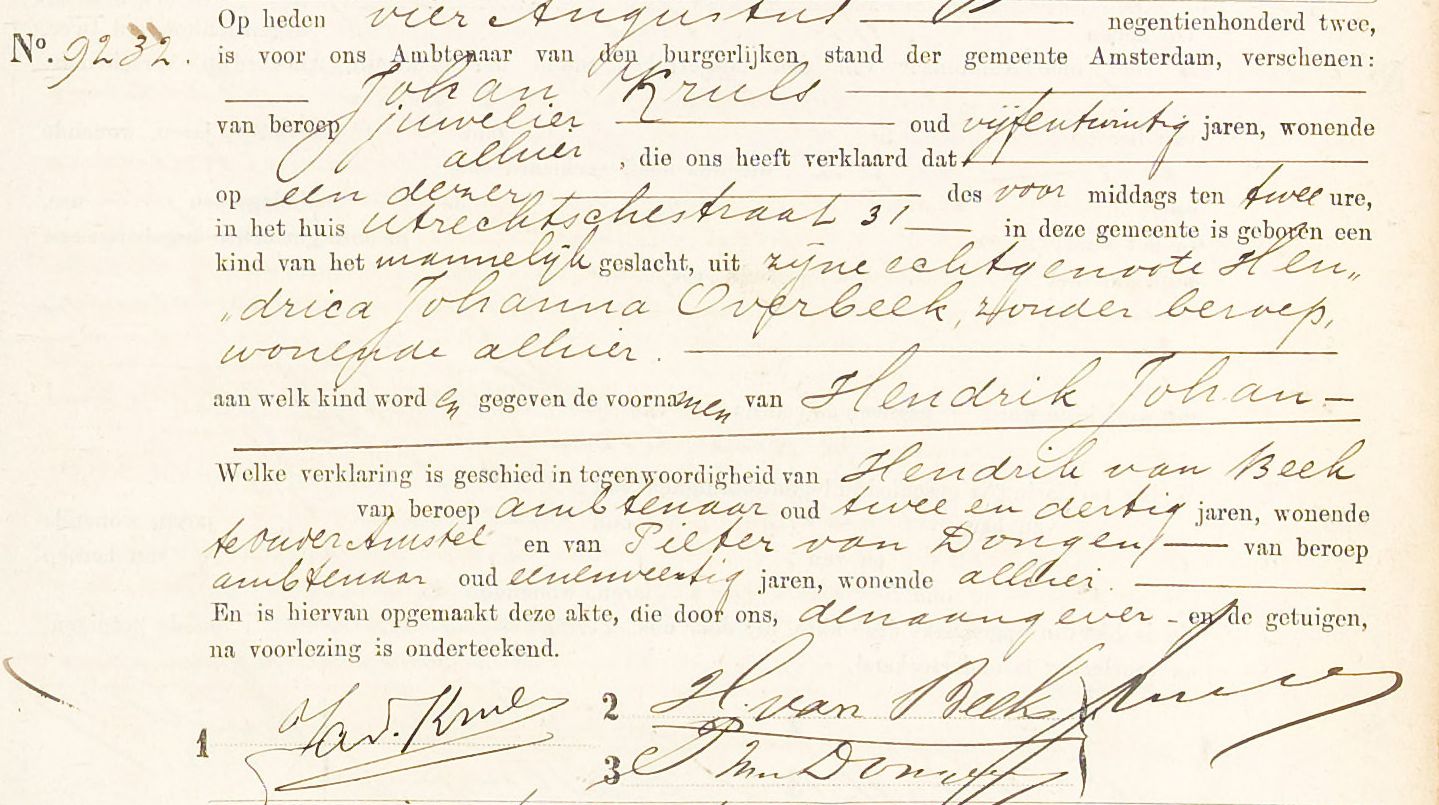 Op heden vier Augustus negentienhonderd twee,
No. 9232. is voor ons Ambtenaar van den burgerlijken stand der gemeente Amsterdam, verschenen:
Johan Kruls
van beroep juwelier oud vijfentwintig jaren, wonende
alhier, die ons heeft verklaard dat
op een dezer des voor middags ten twee ure,
in het huis Utrechtschestraat 31 in deze gemeente is geboren een
kind van het mannelijk geslacht, uit zijne echtgenoote Hen„
„drica Johanna Overbeek, zonder beroep,
wonende alhier.
aan welk kind word en gegeven de voornamen van Hendrik Johan —
Welke verklaring is geschied in tegenwoordigheid van Hendrik van Beek
van beroep ambtenaar oud twee en dertig jaren, wonende
te Ouder Amstel en van Pieter van Dongen, van beroep
ambtenaar oud eenenveertig jaren, wonende alhier.
En is hiervan opgemaakt deze akte, die door ons, den aangever - en de getuigen,
na voorlezing is onderteekend.
1 Kruls
2 H. van Beek
3 P van Dongen